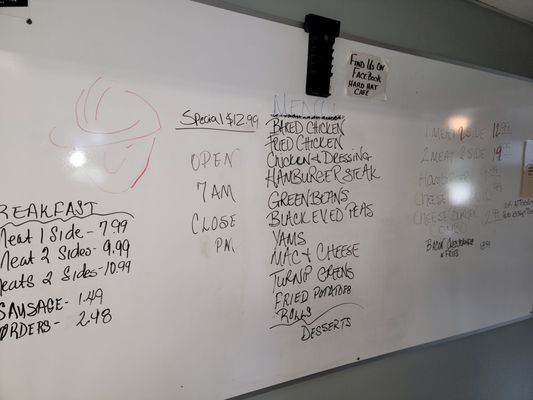 FIND US ON
FACEBOOK
HARD HAT
CAFE
Special $12.99
OPEN
7AM
CLOSE
PM
BREAKFAST
Meat 1 Side - 7.99
Meat 2 Sides - 9.99
Meats 2 Sides - 10.99
SAUSAGE - 1.49
ORDERS - 2.98
MENU
BAKED CHICKEN
FRIED CHICKEN
CHICKEN & DRESSING
HAMBURGER STEAK
GREEN BEANS
BLACK EYED PEAS
YAMS
MAC & CHEESE
TURNIP GREENS
FRIED POTATOES
ROLLS
DESSERTS
1 MEAT 2 SIDE 12.99
2 MEAT 2 SIDE
HAMBURGER
CHEESE
CHEESE BURGER
COMBO
BACON CHEESEBURGER
& FRIES